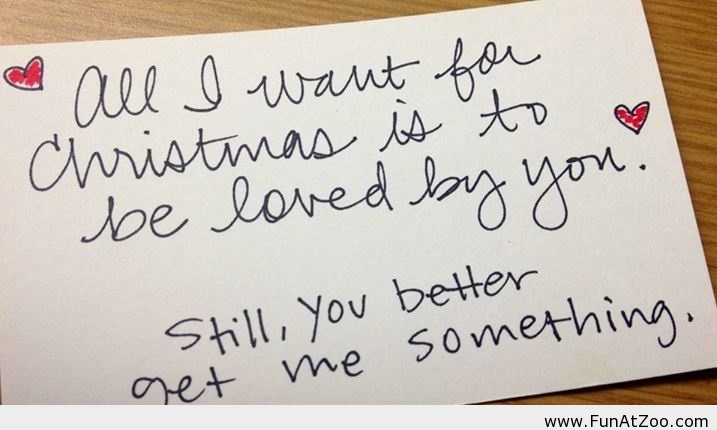 All I want for
Christmas is to
be loved by you.
Still, you better
get me something.
www.FunAtZoo.com